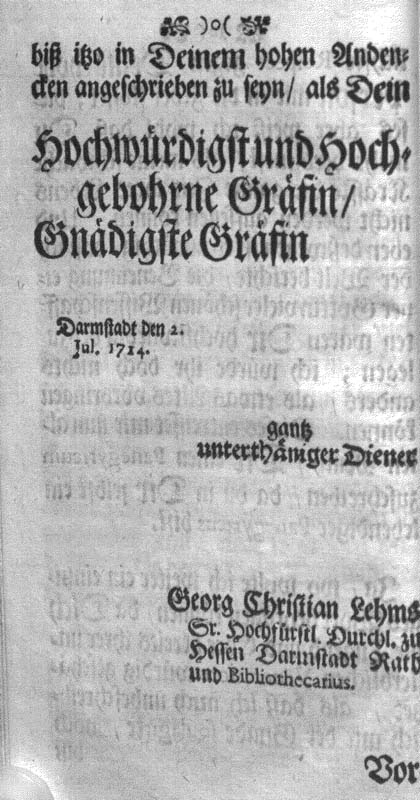 )o(
biß itzo in Deinem hohen Anden-
cken angeschrieben zu seyn/ als Dein
Hochwürdigst und Hoch-
gebohrne Gräfin/
Gnädigste Gräfin
Darmstadt den 2.
Jul. 1714.
gantz
unterthäniger Diener
Georg Christian Lehms
Sr. Hochfürstl. Durchl. zu
Hessen Darmstadt Rath
und Bibliothecarius.
Vor